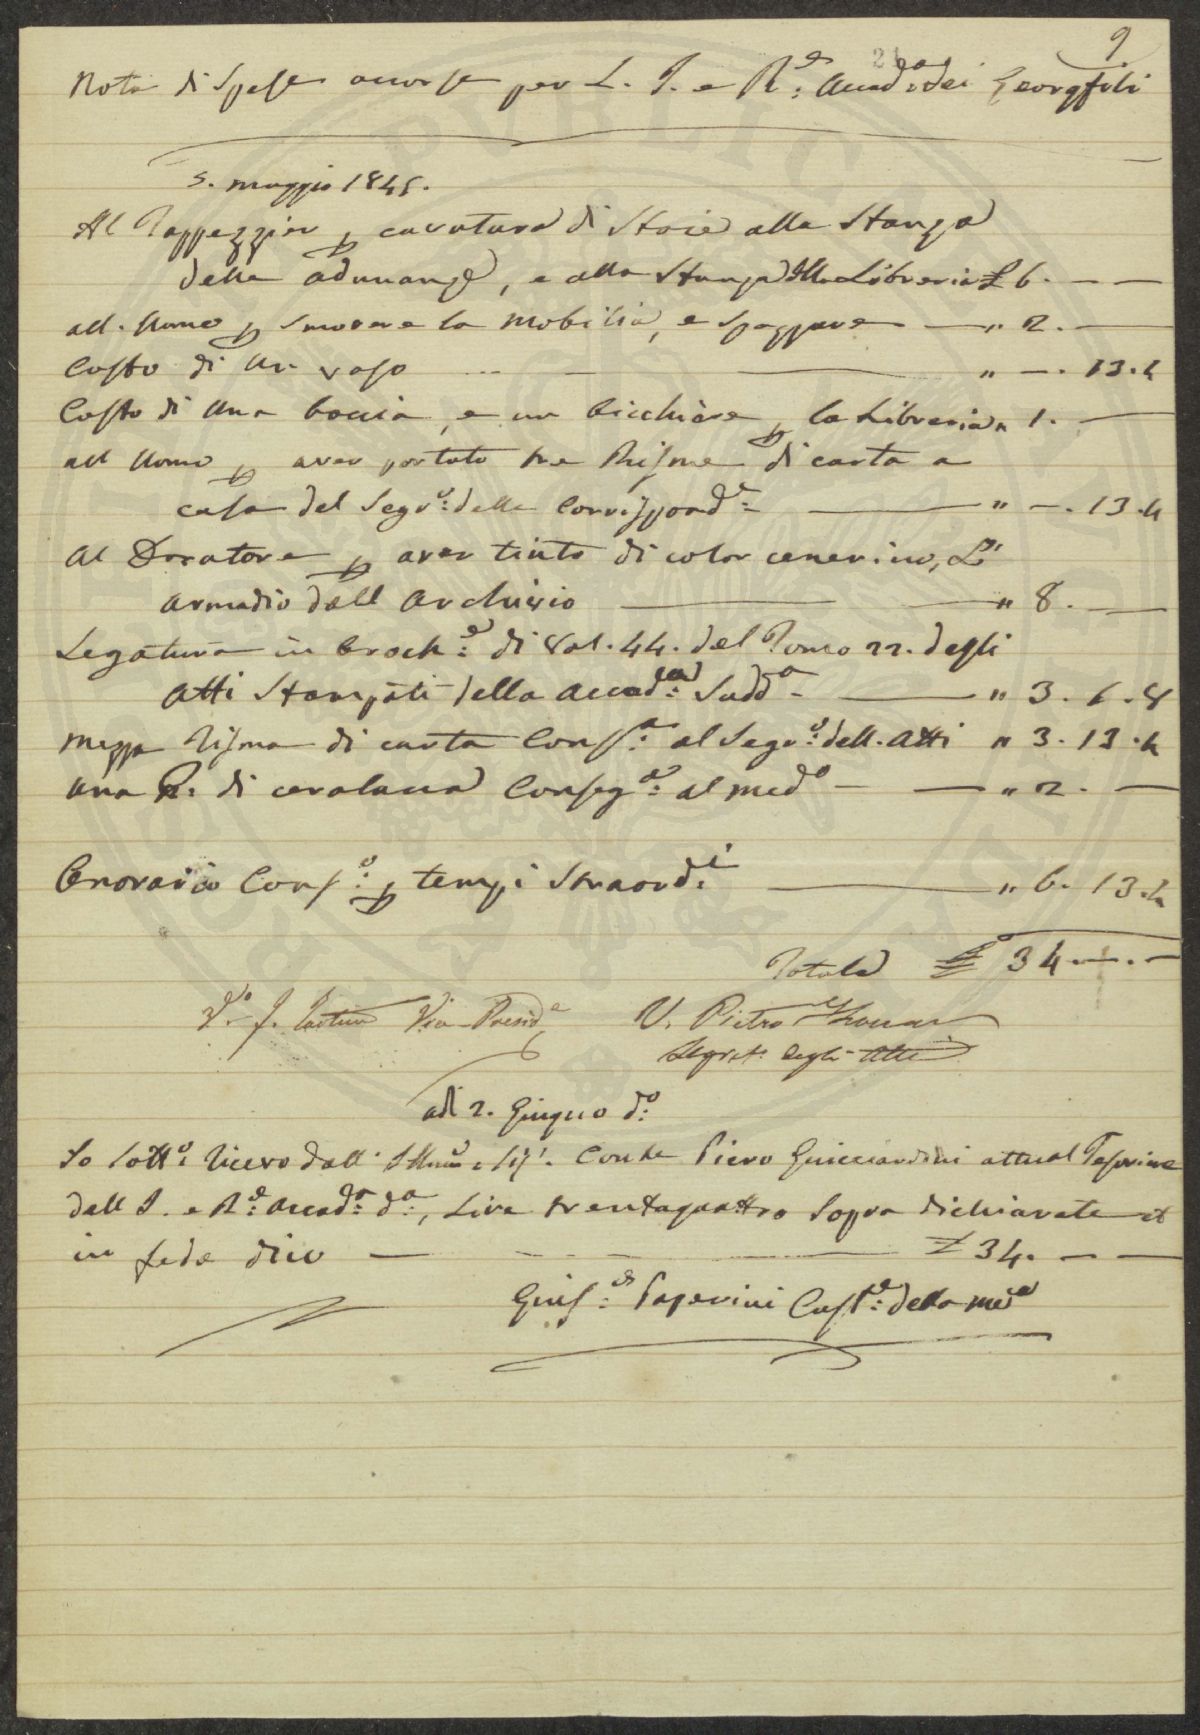 9
Nota di Spese occorse per L. I. e R.e Accad.a dei Georgofili
5. maggio 1845.
Al Tappezzier p cavatura di Stoie alla Stanza
delle adunanze, e alla Stanza della Libreria £ 6. — —
all. Uomo p smovere la Mobilia, e spazzare — " 2. —
Costo di un vaso — " —. 13.4
Costo di una boccia, e un bicchiere p la Libreria " 1. —
all Uomo p aver portato tre Risme di carta a
casa del Segr.o delle Corrispond.e — " —. 13.4
Al Doratore p aver tinto di color cenerino, L'
armadio dell Archivio — " 8. —
Legatura in broch.e di Vol. 44. del Tomo 22. degli
Atti Stampati della Accad.a Sudd.a — " 3. 6. 8
Mezza Risma di carta Cons.a al Segr.o dell. Atti " 3. 13. 4
una £. di ceralacca Conseg.a al med.o — " 2. —
Onorario Cons.o p tempi Straord.i — " 6. 13. 4
Totale £ 34. —. —
V.o Vice Presid.e V. Pietro
Segret.o degli Atti
adì 2. Giugno d.o
Io Sott.o ricevo dall' Illmo e Sig.r Conte Piero Guicciardini attual Tesoriere
dell I. e R.e Accad.a d.a, Lire trentaquattro Sopra dichiarate et
in fede dico — £ 34. — —
Gius.e Paperini Cust.e della med.a